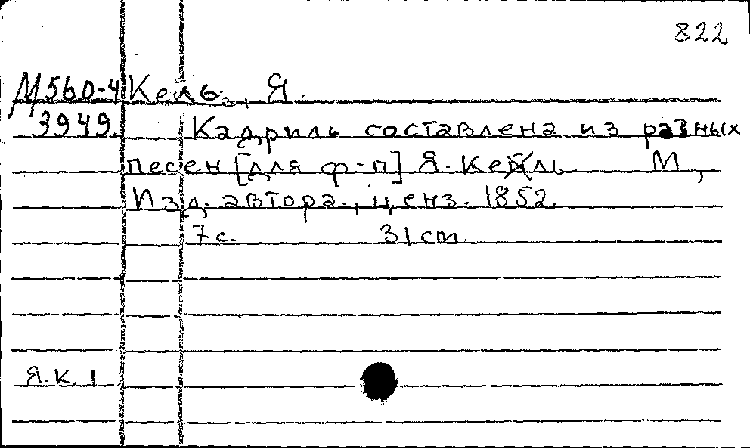 822
М560-4 Кель, Я.
3949. Кадриль составлена из разных
песен [для ф-п] Я. Кель М,
Изд. автора, ценз. 1852.
7 с. 31 cm
Я.К. 1